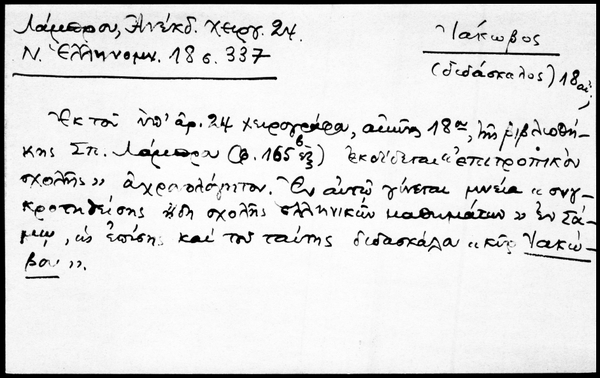 Λάμπρου, Ἀνέκδ. χειρ. 24.
Ν. Ἑλληνομν. 18 σ. 337
Ἰάκωβος
(διδάσκαλος) 18 αἰ.
Ἐκ τοῦ ὑπ' ἀρ. 24 χειρογράφου, αἰῶνος 18ου, τῆς βιβλιοθή-
κης Σπ. Λάμπρου (φ. 165β ἑξ) ἐκδίδεται «ἐπιτροπικὸν
σχολῆς» ἀχρολόγητον. Ἐν αὐτῷ γίνεται μνεία «συγ-
κροτηθείσης ἤδη σχολῆς ἑλληνικῶν μαθημάτων» ἐν Σά-
μῳ, ὡς ἐπίσης καὶ τοῦ ταύτης διδασκάλου «κὺρ Ἰακώ-
βου».